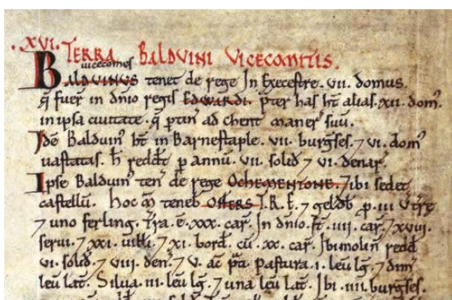 .XVI. TERRA BALDVINI VICECOMITIS.
vicecomes
Balduinus tenet de rege In Execestre. vii. domus.
q̃ fuer̃ in dñio regis Edwardi. p̃ter has ht̃ alias. xii. dom̃.
in ipsa ciuitate. q̃ ptin̄ ad
Idē Balduin᾽ ht̃ in Barnestaple. vii. burgs̃es. ⁊ vi. dom᾽
uastatas. h̃ reddt̃ p annū. vii. solid ⁊ vi. denar̃.
Ipse Balduin᾽ ten᾽ de rege OCHEMENTONE. ⁊ ibi sedet
castellū. Hoc m̃ teneb̃ OSFERS T.R.E. ⁊ geldb̃ p. iii. virg̃
⁊ uno ferling. Tr̃a. ē. xxx. car̃. In dñio. st̃. iiii. car̃. ⁊ xviii.
serui. ⁊ xxi. uilli. ⁊ xi. bord. cū. xx. car̃. Ibi molin̄ redd̃
vi. solid. ⁊ viii. den̄. ⁊ v. ac̃ p̃ti. Pastura. i. leu lg̃. ⁊ dim̃
leu lat̃. Silua. iii. leu lg̃. ⁊ una leu lat̃. Ibi. iiii. burgs̃es.